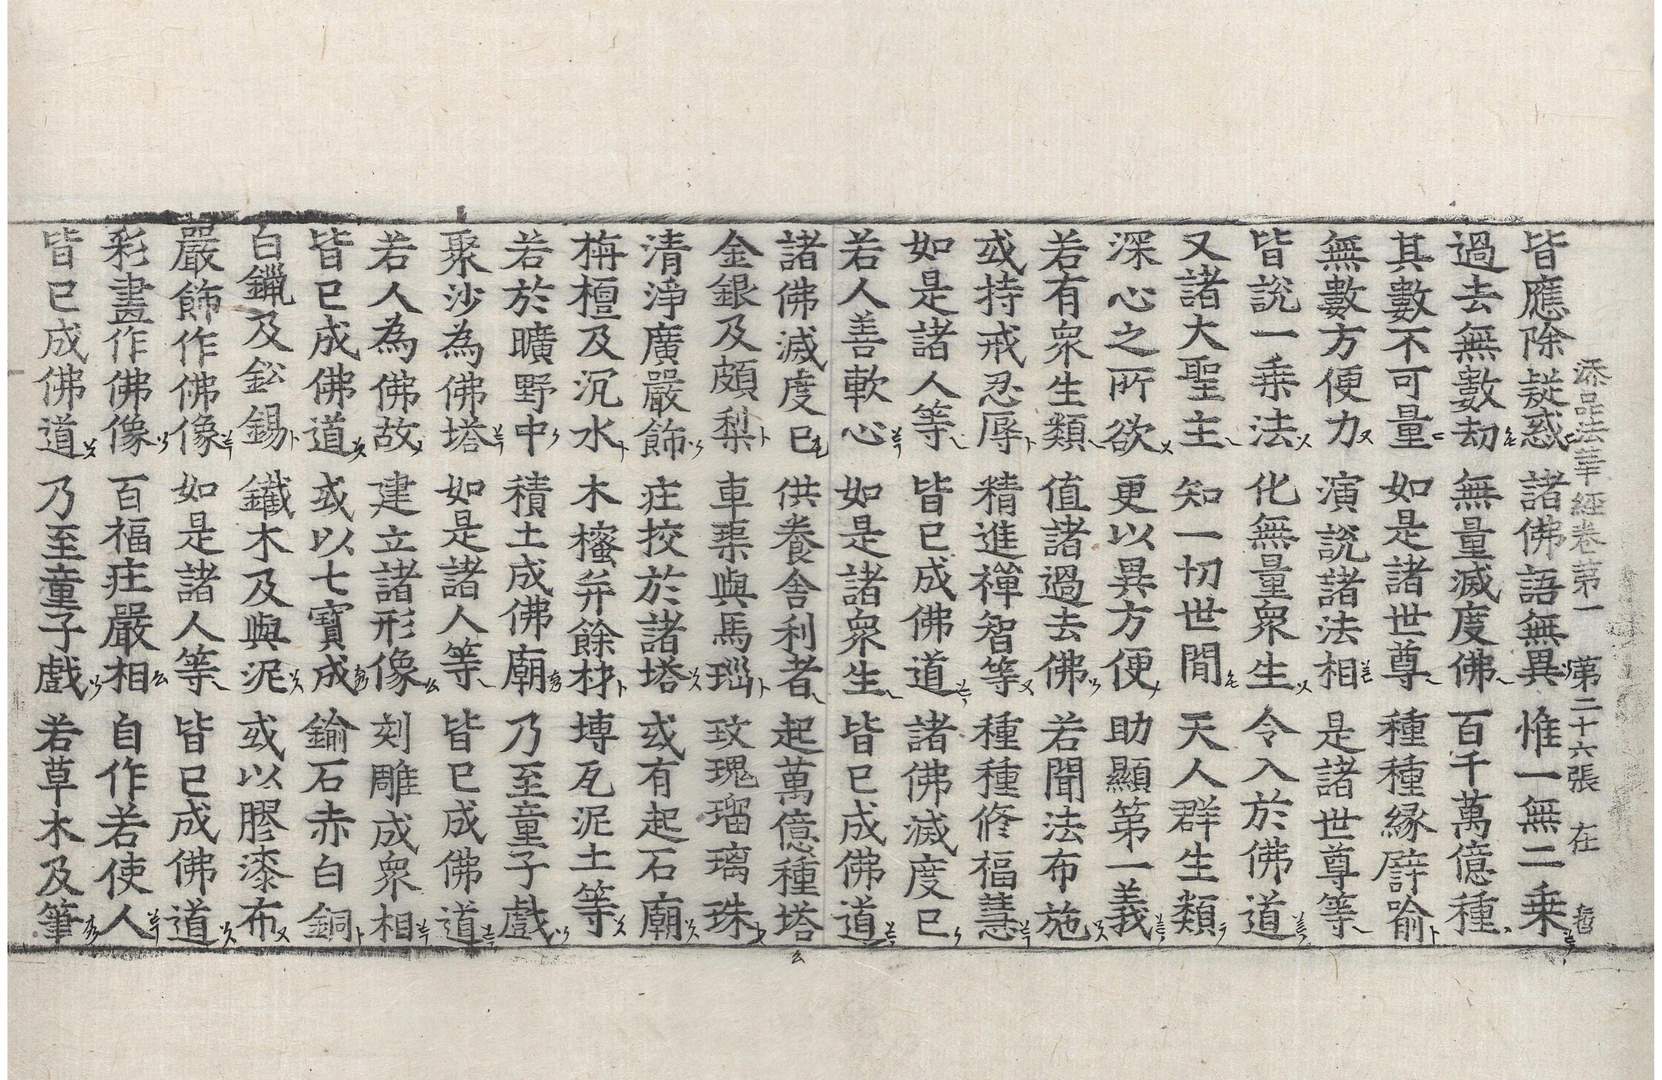 添品法華經卷第一 第二十六張 在
皆應除疑惑 諸佛語無異 惟一無二乘
過去無數劫 無量滅度佛 百千萬億種
其數不可量 如是諸世尊 種種緣譬喻
無數方便力 演說諸法相 是諸世尊等
皆說一乘法 化無量衆生 令入於佛道
又諸大聖主 知一切世間 天人群生類
深心之所欲 更以異方便 助顯第一義
若有衆生類 值諸過去佛 若聞法布施
或持戒忍辱 精進禪智等 種種修福慧
如是諸人等 皆已成佛道 諸佛滅度已
若人善軟心 如是諸衆生 皆已成佛道
諸佛滅度已 供養舍利者 起萬億種塔
金銀及頗梨 車𤦲與馬瑙 玫瑰瑠璃珠
清淨廣嚴飾 莊挍於諸塔 或有起石廟
栴檀及沉水 木櫁并餘材 塼瓦泥土等
若於曠野中 積土成佛廟 乃至童子戲
聚沙為佛塔 如是諸人等 皆已成佛道
若人為佛故 建立諸形像 刻雕成衆相
皆已成佛道 或以七寶成 鍮石赤白銅
白鑞及鈆錫 鐵木及與泥 或以膠漆布
嚴飾作佛像 如是諸人等 皆已成佛道
彩畫作佛像 百福莊嚴相 自作若使人
皆已成佛道 乃至童子戲 若草木及筆